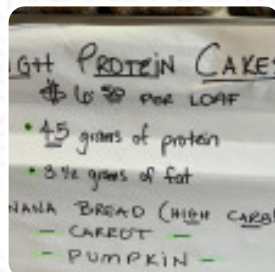 GH PROTEIN CAKES
$6.50 PER LOAF
• 45 grams of protein
• 3 1/2 grams of fat
NANA BREAD (HIGH CARB
— CARROT —
— PUMPKIN —